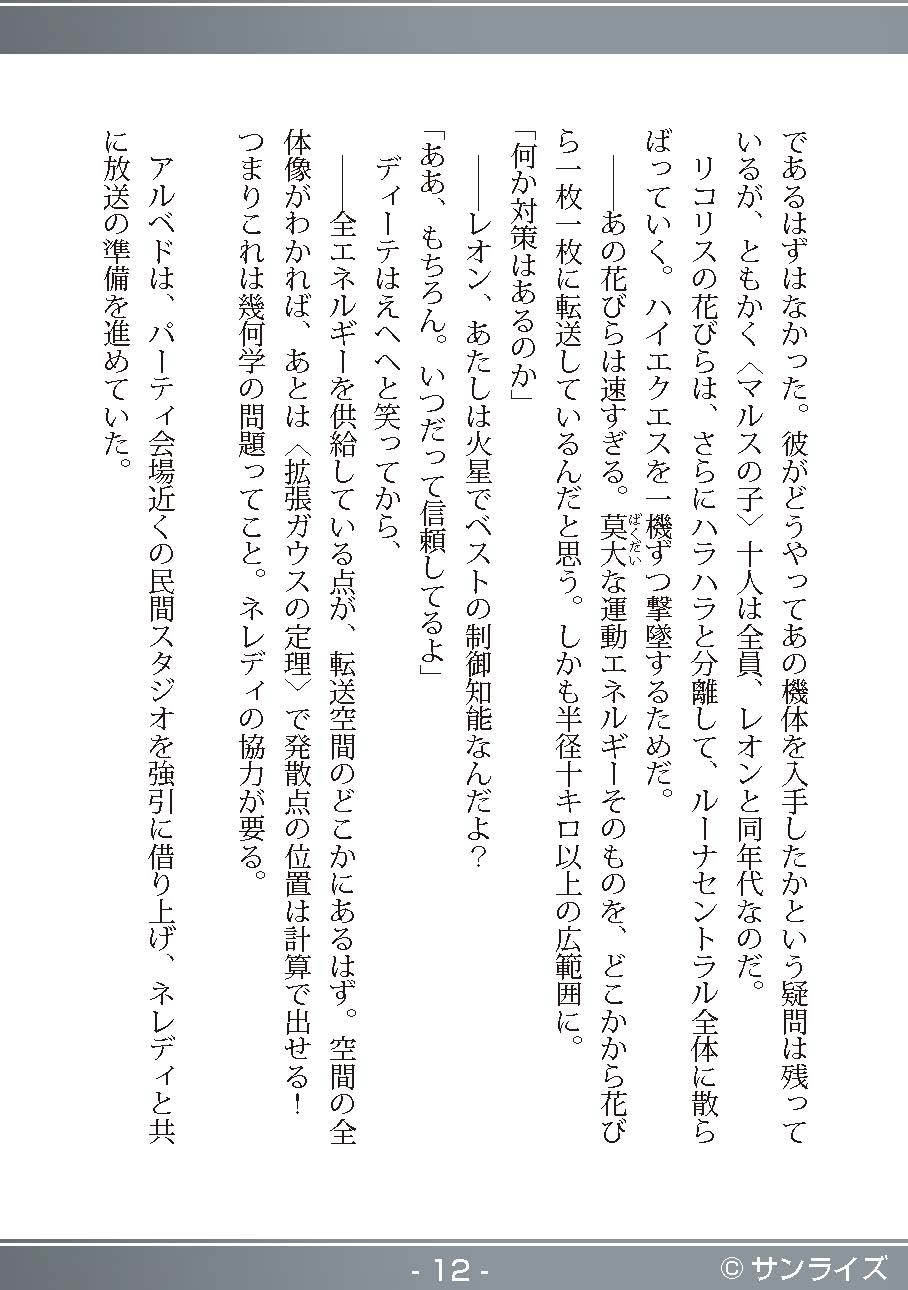 であるはずはなかった。彼がどうやってあの機体を入手したかという疑問は残って
いるが、ともかく〈マルスの子〉十人は全員、レオンと同年代なのだ。
リコリスの花びらは、さらにハラハラと分離して、ルーナセントラル全体に散ら
ばっていく。ハイエクエスを一機ずつ撃墜するためだ。
――あの花びらは速すぎる。莫大な運動エネルギーそのものを、どこかから花び
ばくだい
ら一枚一枚に転送しているんだと思う。しかも半径十キロ以上の広範囲に。
「何か対策はあるのか」
――レオン、あたしは火星でベストの制御知能なんだよ？
「ああ、もちろん。いつだって信頼してるよ」
ディーテはえへへと笑ってから、
――全エネルギーを供給している点が、転送空間のどこかにあるはず。空間の全
体像がわかれば、あとは〈拡張ガウスの定理〉で発散点の位置は計算で出せる！
つまりこれは幾何学の問題ってこと。ネレディの協力が要る。
アルベドは、パーティ会場近くの民間スタジオを強引に借り上げ、ネレディと共
に放送の準備を進めていた。
- 12 -
© サンライズ